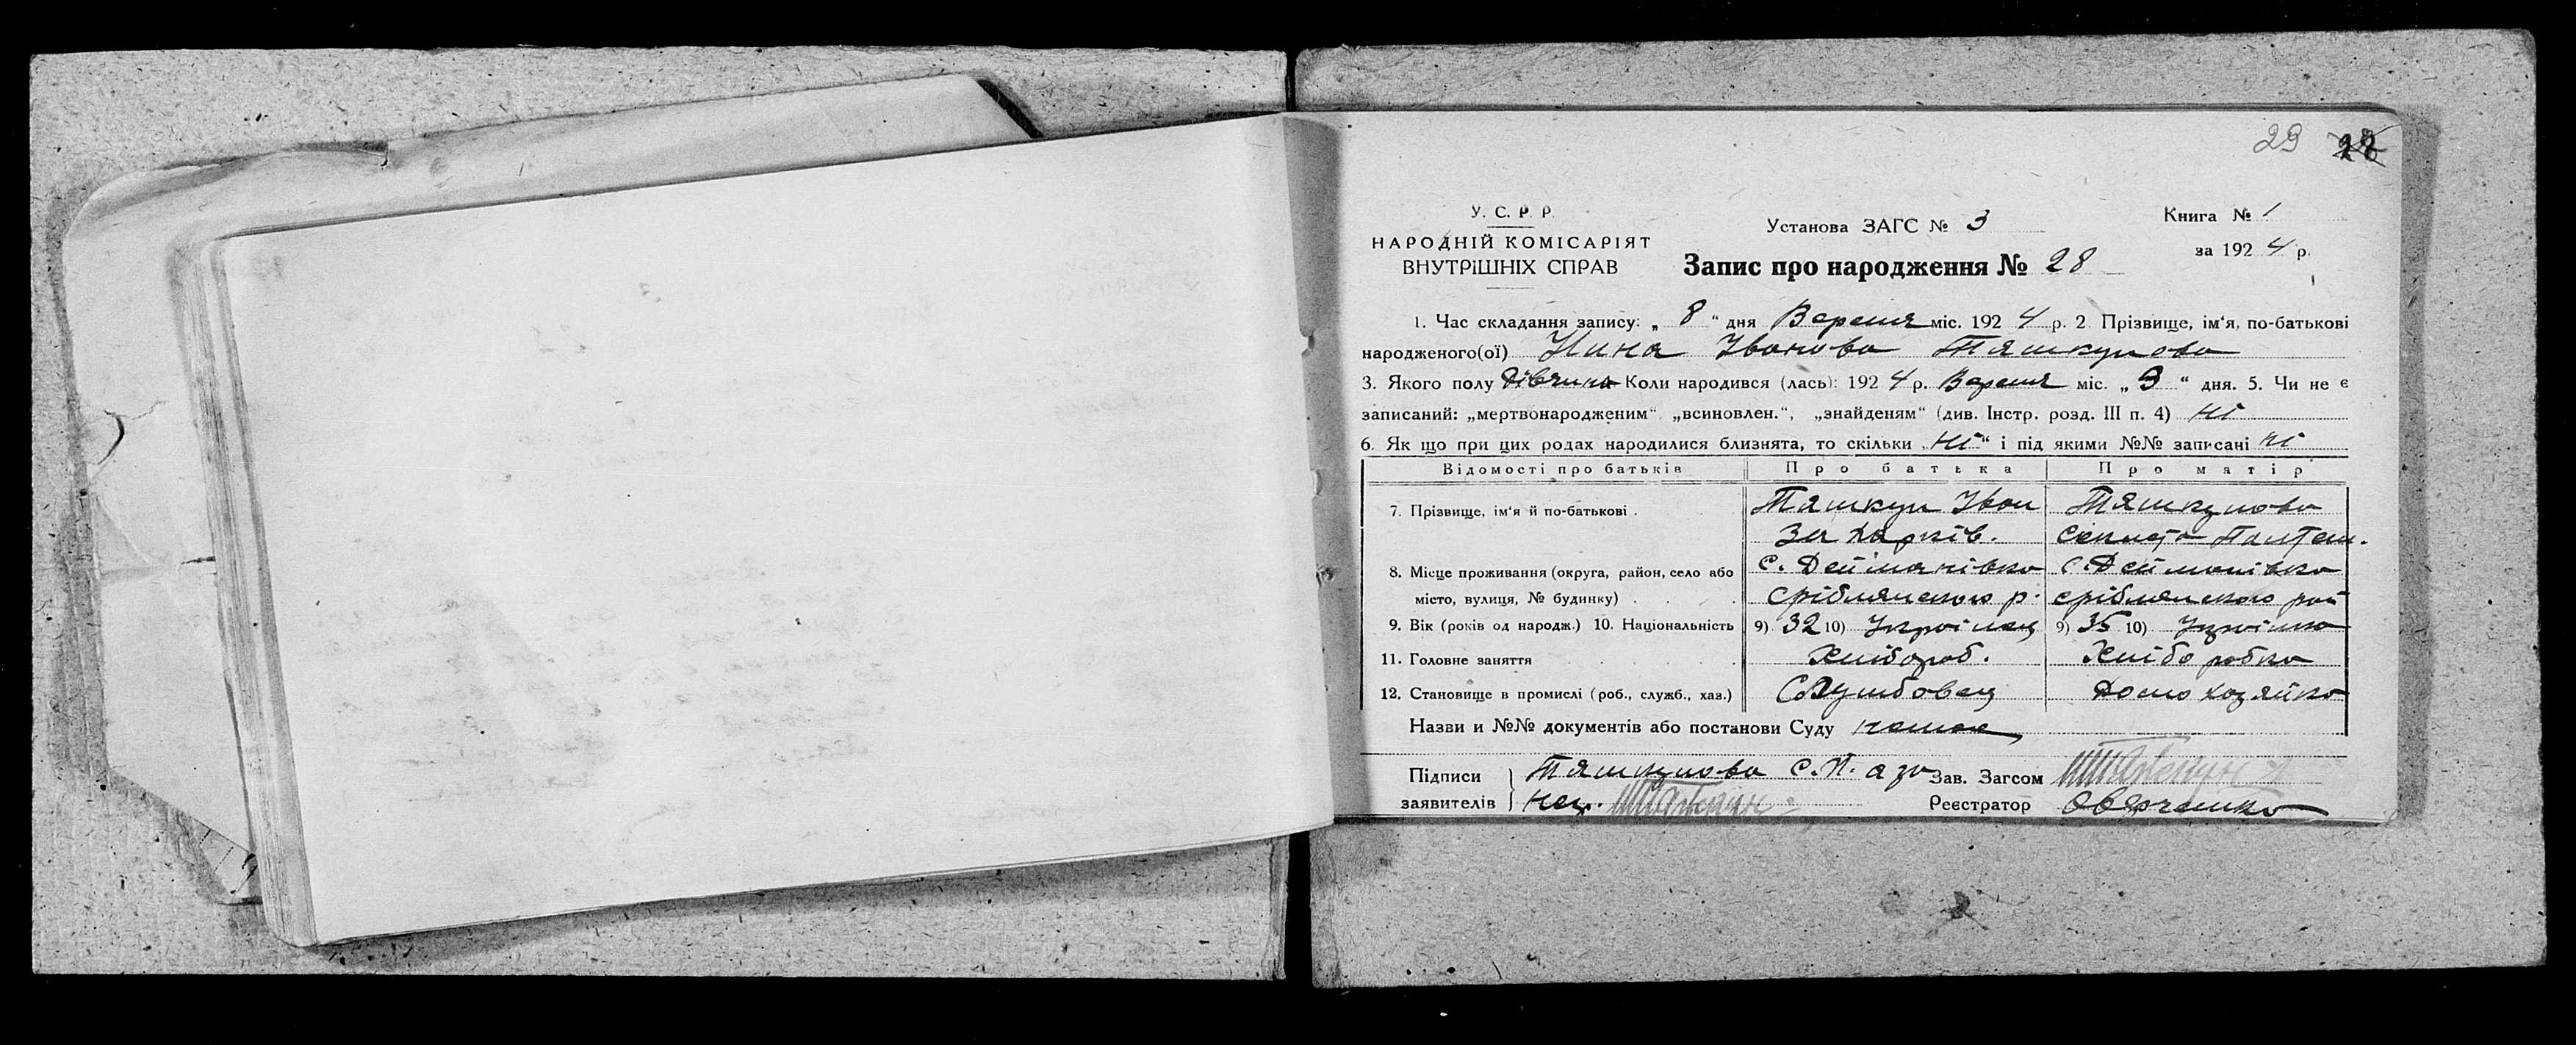 29 28
У. С. Р. Р.
НАРОДНІЙ КОМІСАРІЯТ
ВНУТРІШНІХ СПРАВ
Установа ЗАГС № 3
Книга № 1
за 1924 р.
Запис про народження № 28
1. Час складання запису: „ 8 “ дня Вересня міс. 1924 р. 2 Прізвище, ім'я, по-батькові
народженого(ої) Нина Іванова Тяшкунова
3. Якого полу дівчина Коли народився (лась): 1924 р. Вересня міс. „ 3 “ дня. 5. Чи не є
записаний: „мертвонародженим“ „всиновлен.“, „знайденям“ (див. Інстр. розд. III п. 4) ні
6. Як що при цих родах народилися близнята, то скільки „ ні “ і під якими №№ записані ні
Відомості про батьків Про батька Про матір
7. Прізвище, ім'я й по-батькові . Тяшкун Іван Тяшкунова
С. Дейманівка С. Дейманівка
8. Місце проживання (округа, район, село або
місто, вулиця, № будинку) . . . Срібнянського р. срібнянского рай
9. Вік (років од народж.) 10. Національність 9) 32 10) Украінец 9) 35 10) Украінка
11. Головне заняття Хлібороб. Хлібо робка
12. Становище в промислі (роб., служб., хаз.) Службовец Домо хозяйка
Назви и №№ документів або постанови Суду немає
Підписи Тяшкунова С. П. а зо Зав. Загсом
заявителів нец. Реєстратор Оверченко